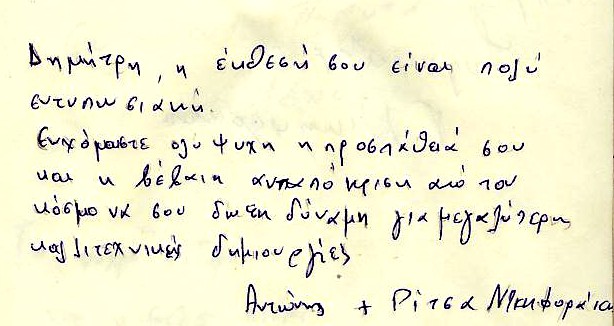 Δημήτρη, η έκθεσή σου είναι πολύ
εντυπωσιακή.
Ευχόμαστε ολόψυχη η προσπάθειά σου
και η βέβαιη ανταπόκριση από τον
κόσμο να σου δώση δύναμη για μεγαλύτερη
καλλιτεχνικές δημιουργίες
Αντώνης + Ρίτσα